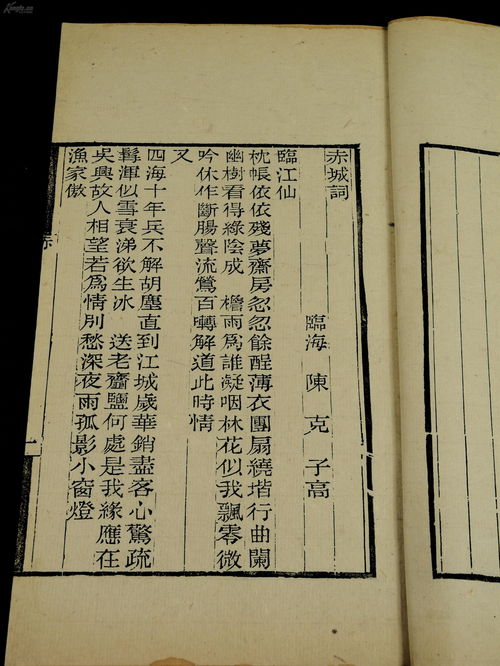 赤城詞
臨海 陳克 子高
臨江仙
枕帳依依殘夢齋房忽忽餘酲薄衣團扇繞堦行曲闌
幽樹看得綠陰成 檐雨爲誰凝咽林花似我飄零微
吟休作斷腸聲流鶯百囀解道此時情
又
四海十年兵不解胡塵直到江城歲華銷盡客心驚疏
髯渾似雪衰涕欲生冰 送老虀鹽何處是我緣應在
吳興故人相望若爲情別愁深夜雨孤影小窗燈
漁家傲
赤
一